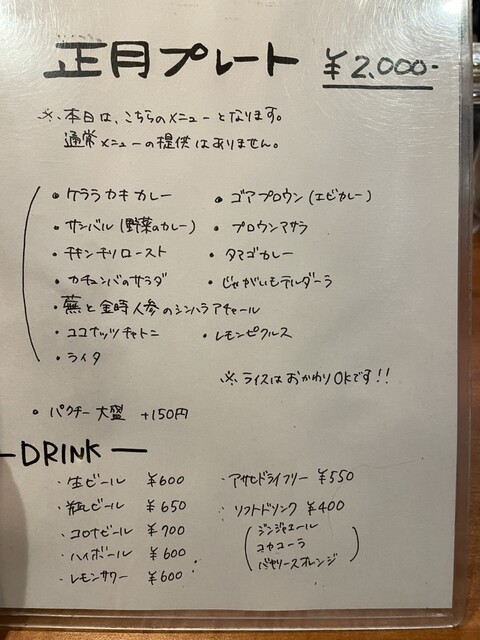 正月プレート ¥2,000-
※ 本日は、こちらのメニューとなります。
通常メニューの提供はありません。
・ケララカキカレー
・ゴアプロウン(エビカレー)
・サンバル(野菜のカレー)
・プロウンマサラ
・チキンチリロースト
・タマゴカレー
・カチュンバのサラダ
・じゃがいもテルダーラ
・蕪と金時人参のシンハラアチャール
・ココナッツチャトニ
・レモンピクルス
・ライタ
※ ライスはおかわりOKです!!
・パクチー大盛 +150円
— DRINK —
・生ビール ¥600
・アサヒドライフリー ¥550
・瓶ビール ¥650
・ソフトドリンク ¥400
・コロナビール ¥700
(ジンジャエール
コカコーラ
バヤリースオレンジ)
・ハイボール ¥600
・レモンサワー ¥600